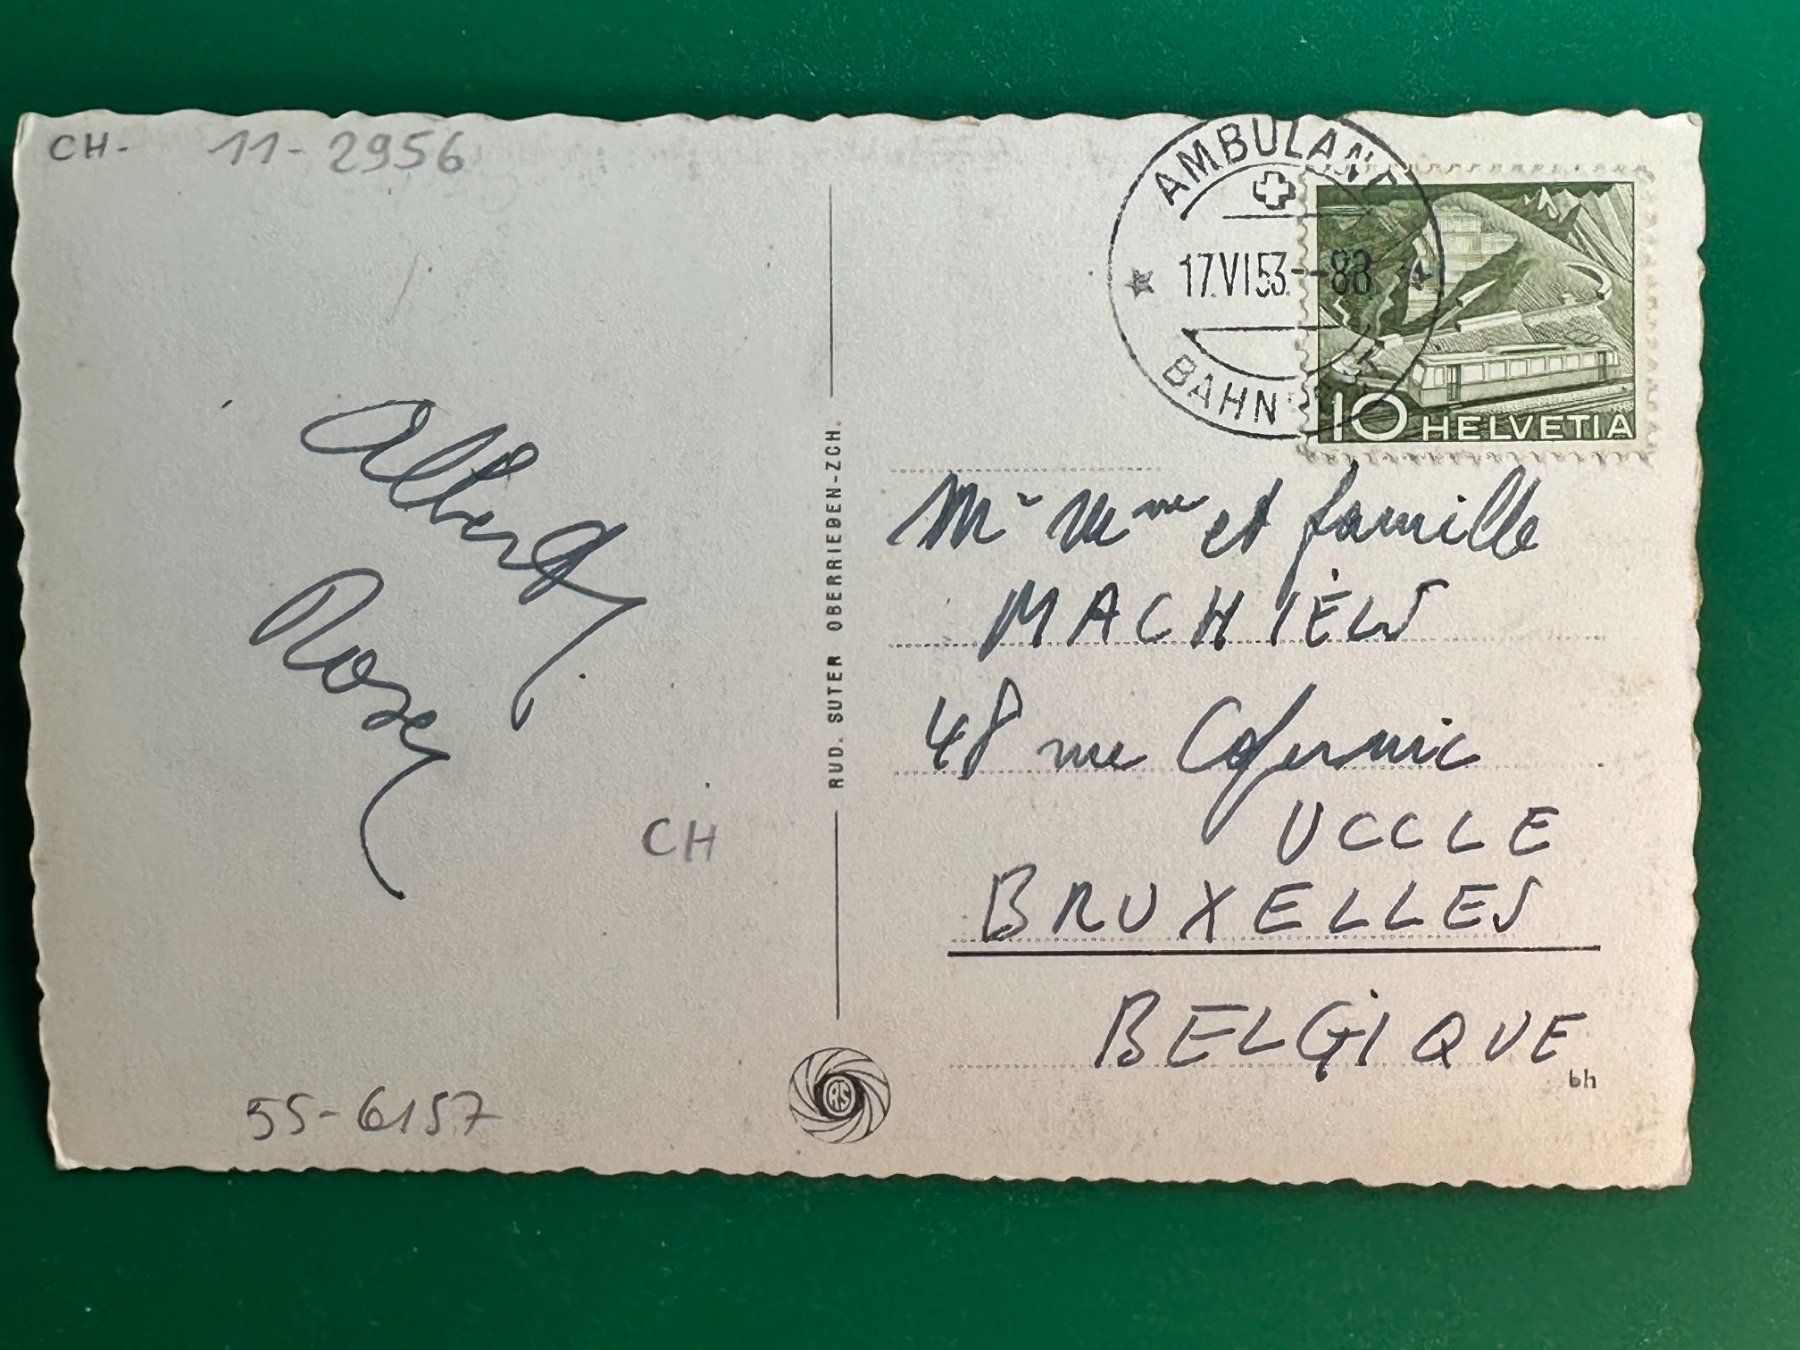 CH- 11-2956
AMBULANT
17.VI.53.--88
BAHNPOST
10 HELVETIA
Albert
Rosey
CH
55-6157
RUD. SUTER OBERRIEDEN-ZCH.
RS
Mr Mme et famille
MACHIÈLS
48 rue Copernic
UCCLE
BRUXELLES
BELGIQUE
bh